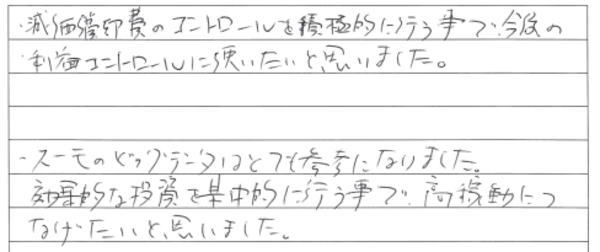 ・減価償却費のコントロールを積極的に行う事で、今後の
・利益コントロールに使いたいと思いました。
・スーモのビッグデータはとても参考になりました。
効果的な投資を集中的に行う事で、高稼動につ
なげたいと思いました。